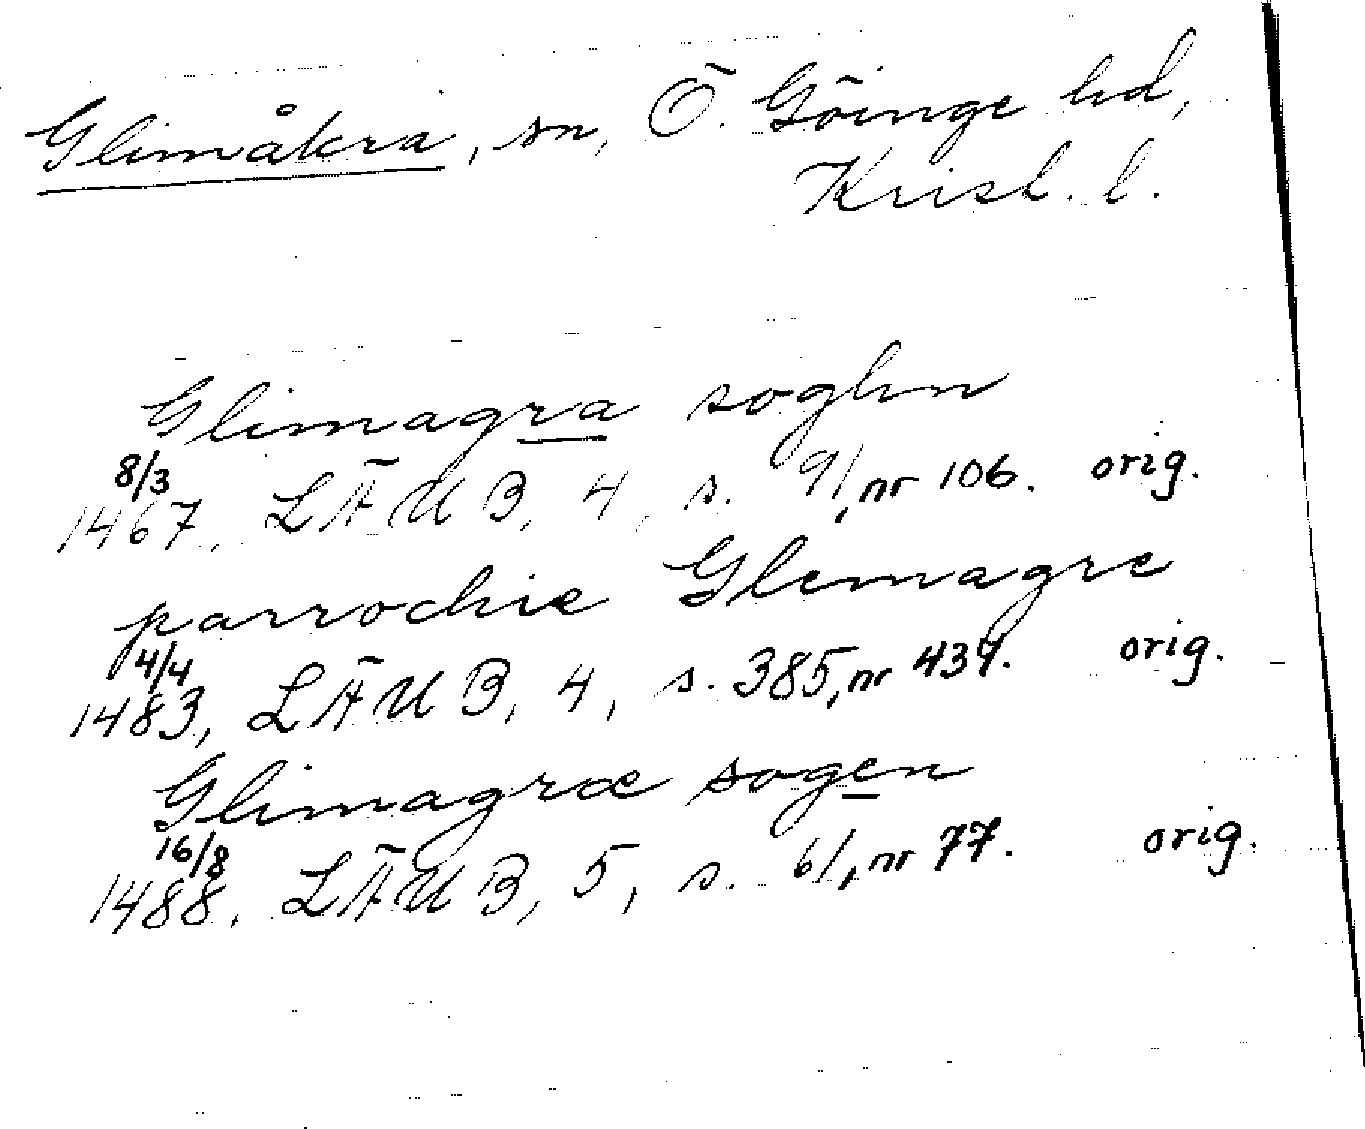 Glimåkra, sn, Ö. Göinge hd,
Krist. l.
Glimagra soghn
8/3
1467, LÄUB, 4, s. 91, nr 106. orig.
parrochie Glemagre
4/4
1483, LÄUB, 4, s. 385, nr 439. orig.
Glimagræ sogen
16/8
1488, LÄUB, 5, s. 61, nr 77. orig.